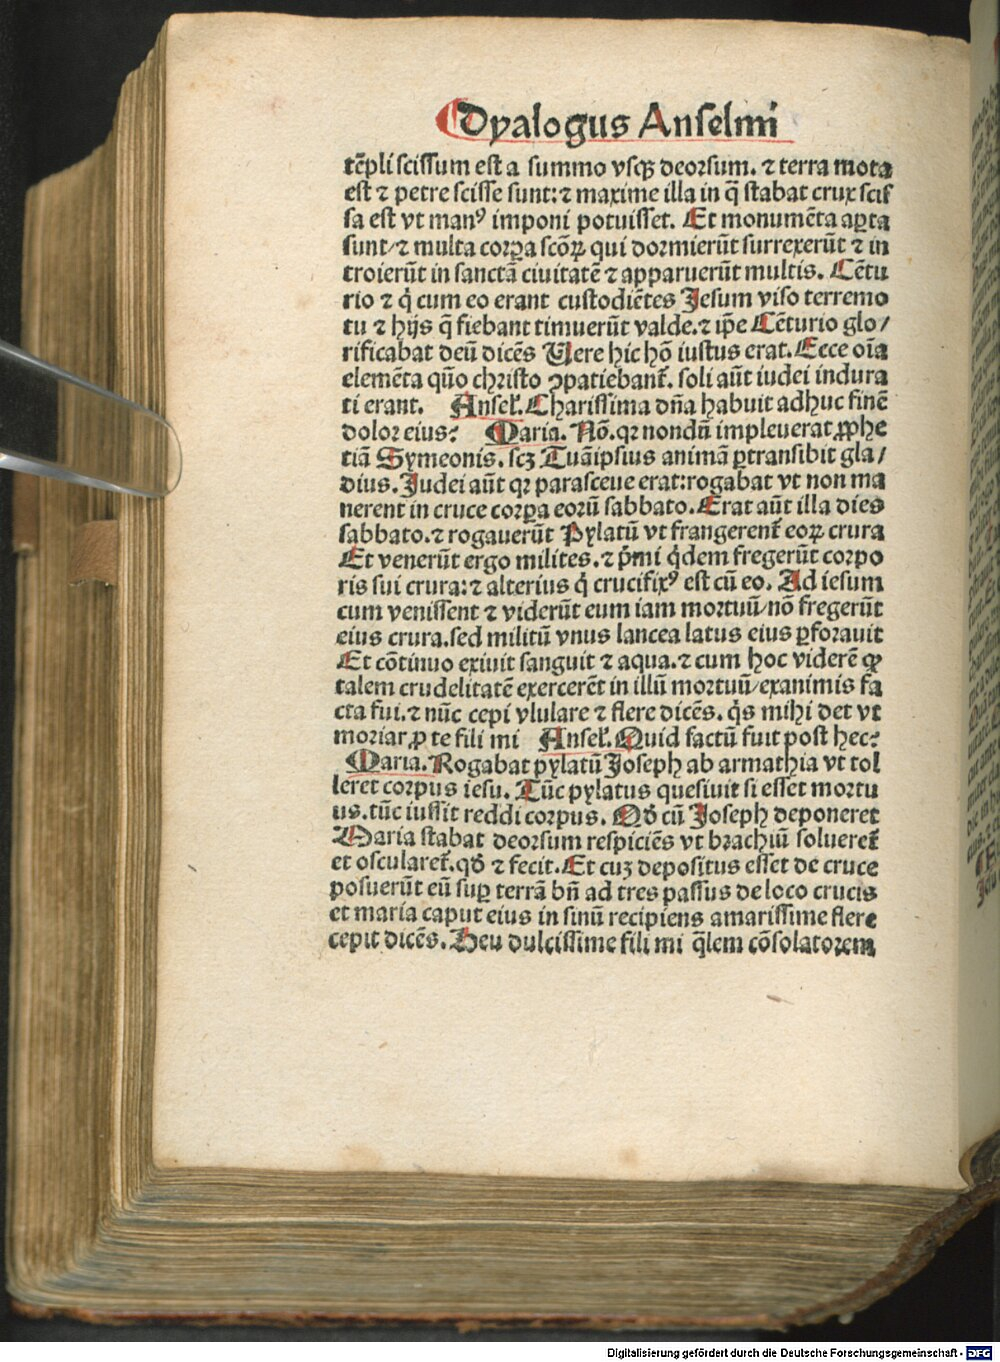 Dyalogus Anselmi
tēpli scissum est a summo vsqꝫ deorsum. ⁊ terra mota
est ⁊ petre scisse sunt: ⁊ maxime illa in q̄ stabat crux scis
sa est vt manꝰ imponi potuisset. Et monumēta aꝑta
sunt/ ⁊ multa corꝑa scōꝝ qui dormierūt surrexerūt ⁊ in
troierūt in sanctā ciuitatē ⁊ apparuerūt multis. Cētu
rio ⁊ q̇ cum eo erant custodiētes Jesum viso terremo
tu ⁊ hijs q̄ fiebant timuerūt valde. ⁊ ip̄e Cēturio glo/
rificabat deū dicēs Uere hic hō iustus erat. Ecce oīa
elemēta qūo christo ꝯpatiebant᷑. soli aūt iudei indura
ti erant. Ansel᷑. Charissima dn̄a habuit adhuc finē
dolor eius? Maria. Nō. qꝛ nondū impleuerat ꝓphe
tiā Symeonis. scꝫ Tuā ipsius animā ꝑtransibit gla/
dius. Judei aūt qꝛ parasceue erat: rogabat vt non ma
nerent in cruce corꝑa eorū sabbato. Erat aūt illa dies
sabbato. ⁊ rogauerūt Pylatū vt frangerent᷑ eoꝝ crura
Et venerūt ergo milites. ⁊ p̄mi q̇dem fregerūt corpo
ris sui crura: ⁊ alterius q̇ crucifixꝰ est cū eo. Ad iesum
cum venissent ⁊ viderūt eum iam mortuū/ nō fregerūt
eius crura. sed militū vnus lancea latus eius ꝑforauit
Et cōtinuo exiuit sanguit ⁊ aqua. ⁊ cum hoc viderē ꝙ
talem crudelitatē exercerēt in illū mortuū/ exanimis fa
cta fui. ⁊ nūc cepi vlulare ⁊ flere dicēs. q̇s mihi det vt
moriar ꝓ te fili mi Ansel᷑. Quid factū fuit post hec?
Maria. Rogabat pylatū Joseph ab armathia vt tol
leret corpus iesu. Tūc pylatus quesiuit si esset mortu
us. tūc iussit reddi corpus. Qd̄ cū Joseph deponeret
Maria stabat deorsum respiciēs vt brachiū solueret᷑
et oscularet᷑. qd̄ ⁊ fecit. Et cuꝫ depositus esset de cruce
posuerūt eū suꝑ terrā bn̄ ad tres passus de loco crucis
et maria caput eius in sinū recipiens amarissime flere
cepit dicēs. Heu dulcissime fili mi q̄lem cōsolatorem
Digitalisierung gefördert durch die Deutsche Forschungsgemeinschaft - DFG